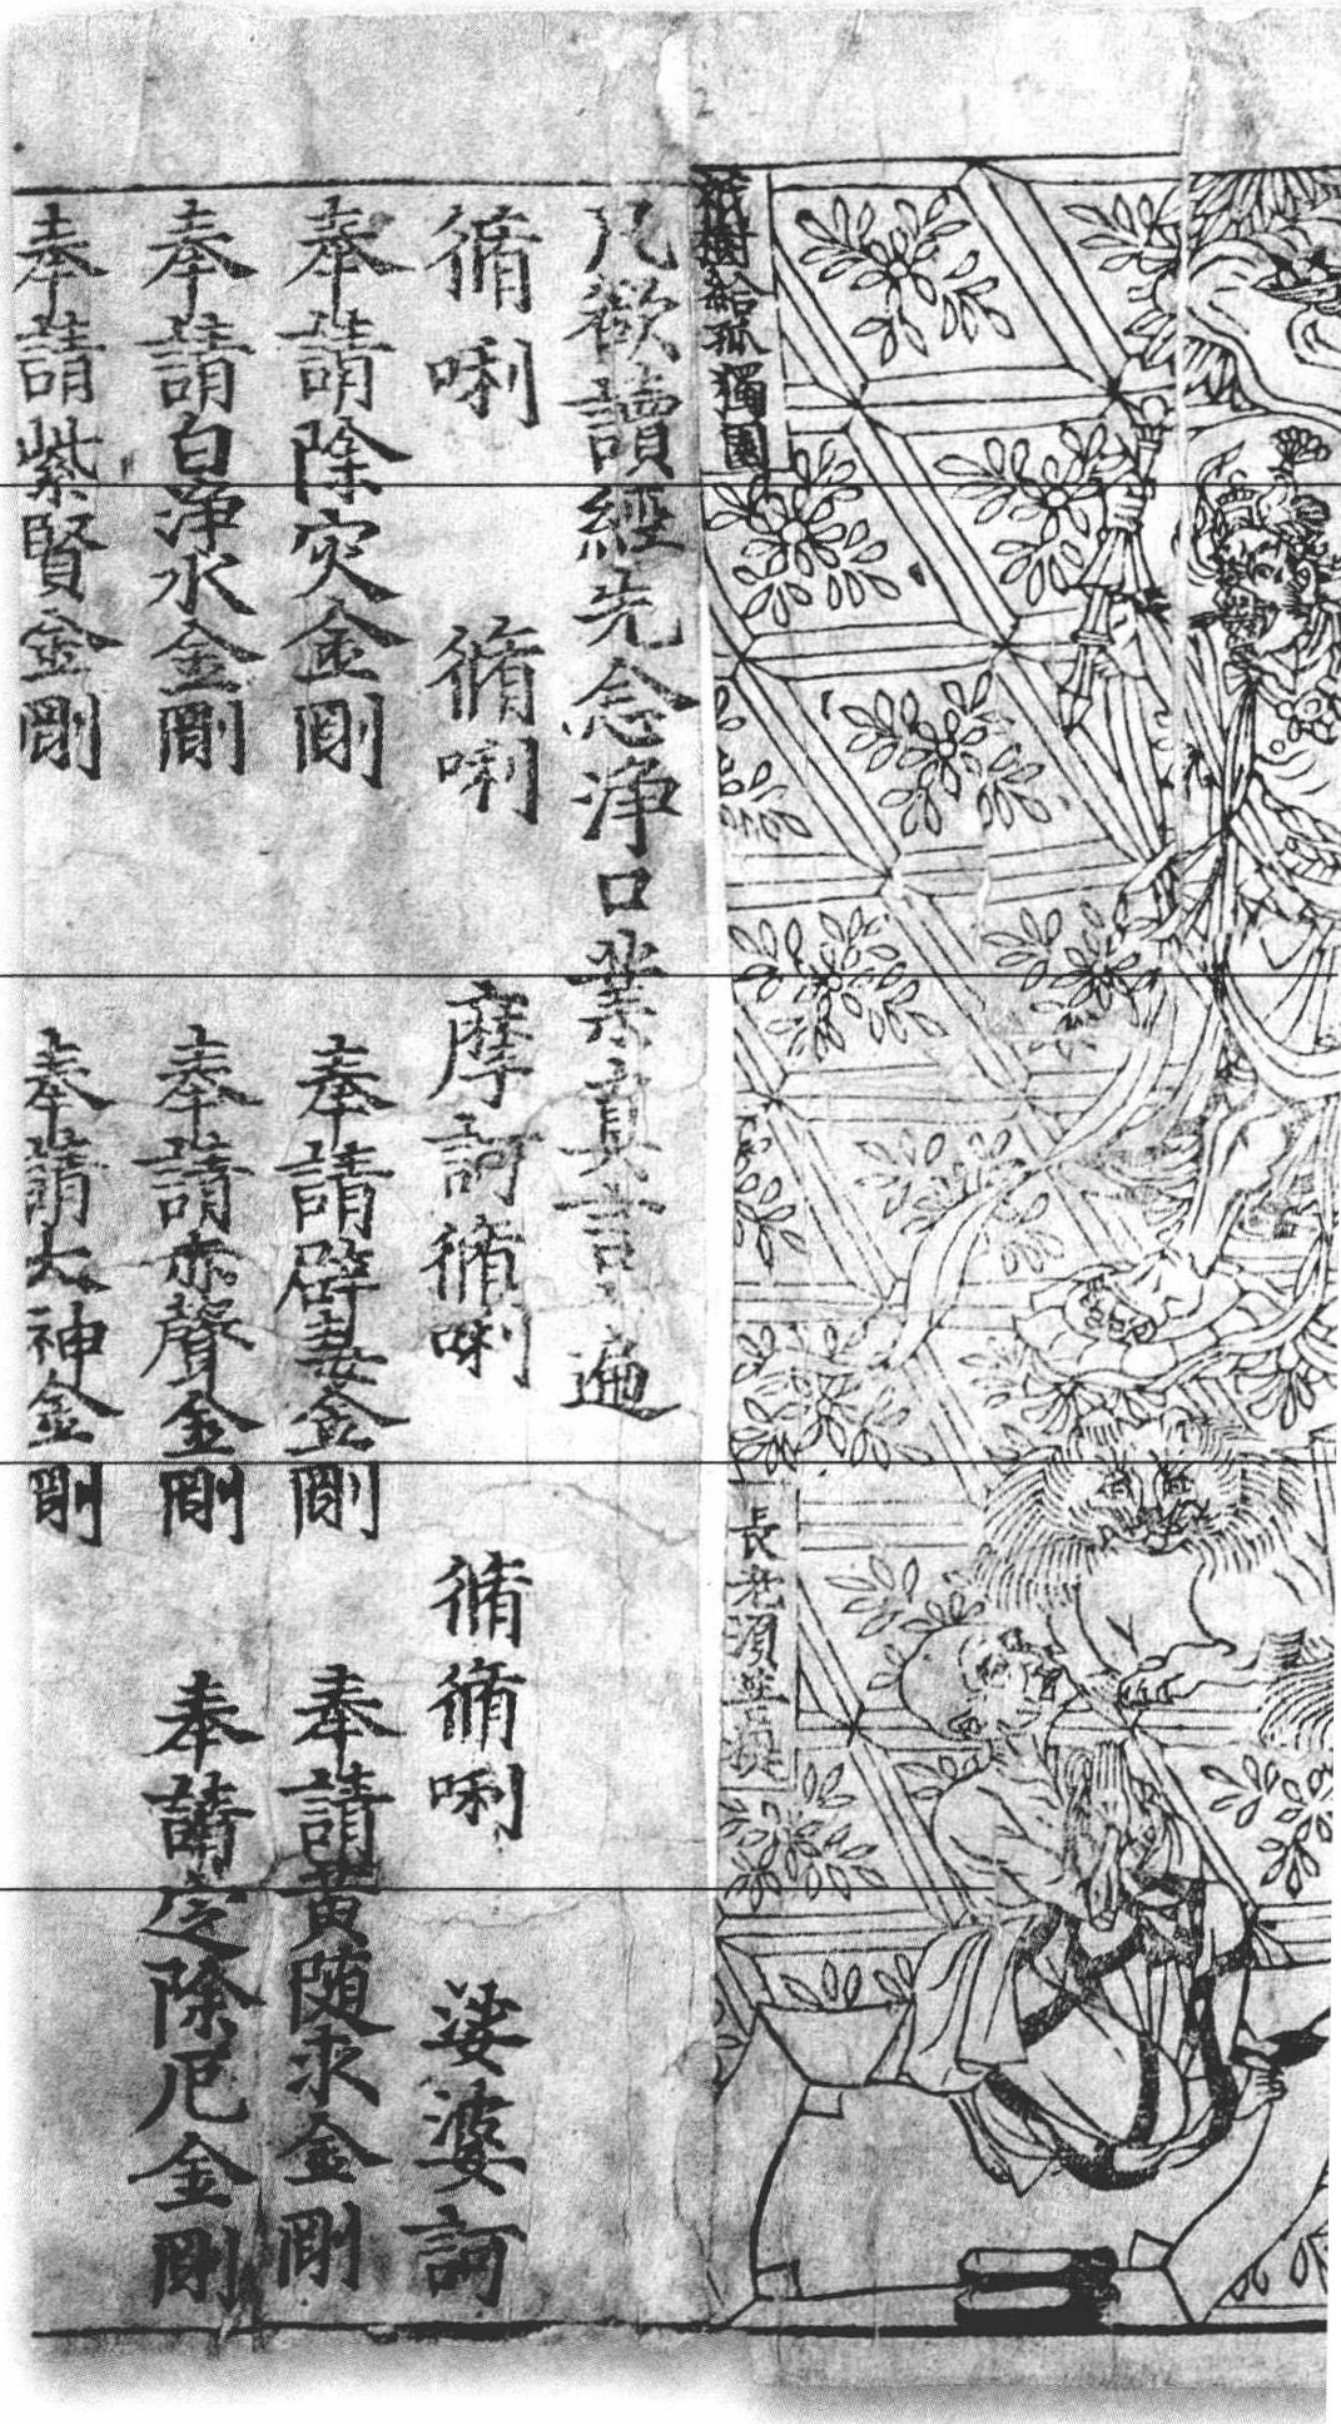 祇樹給孤獨園
長老須菩提
凡欲讀經先念淨口業真言一遍
脩唎 脩唎 摩訶脩唎 脩脩唎 娑婆訶
奉請除灾金剛 奉請辟毒金剛 奉請黄随求金剛
奉請白淨水金剛 奉請赤聲金剛 奉請定除厄金剛
奉請紫賢金剛 奉請大神金剛